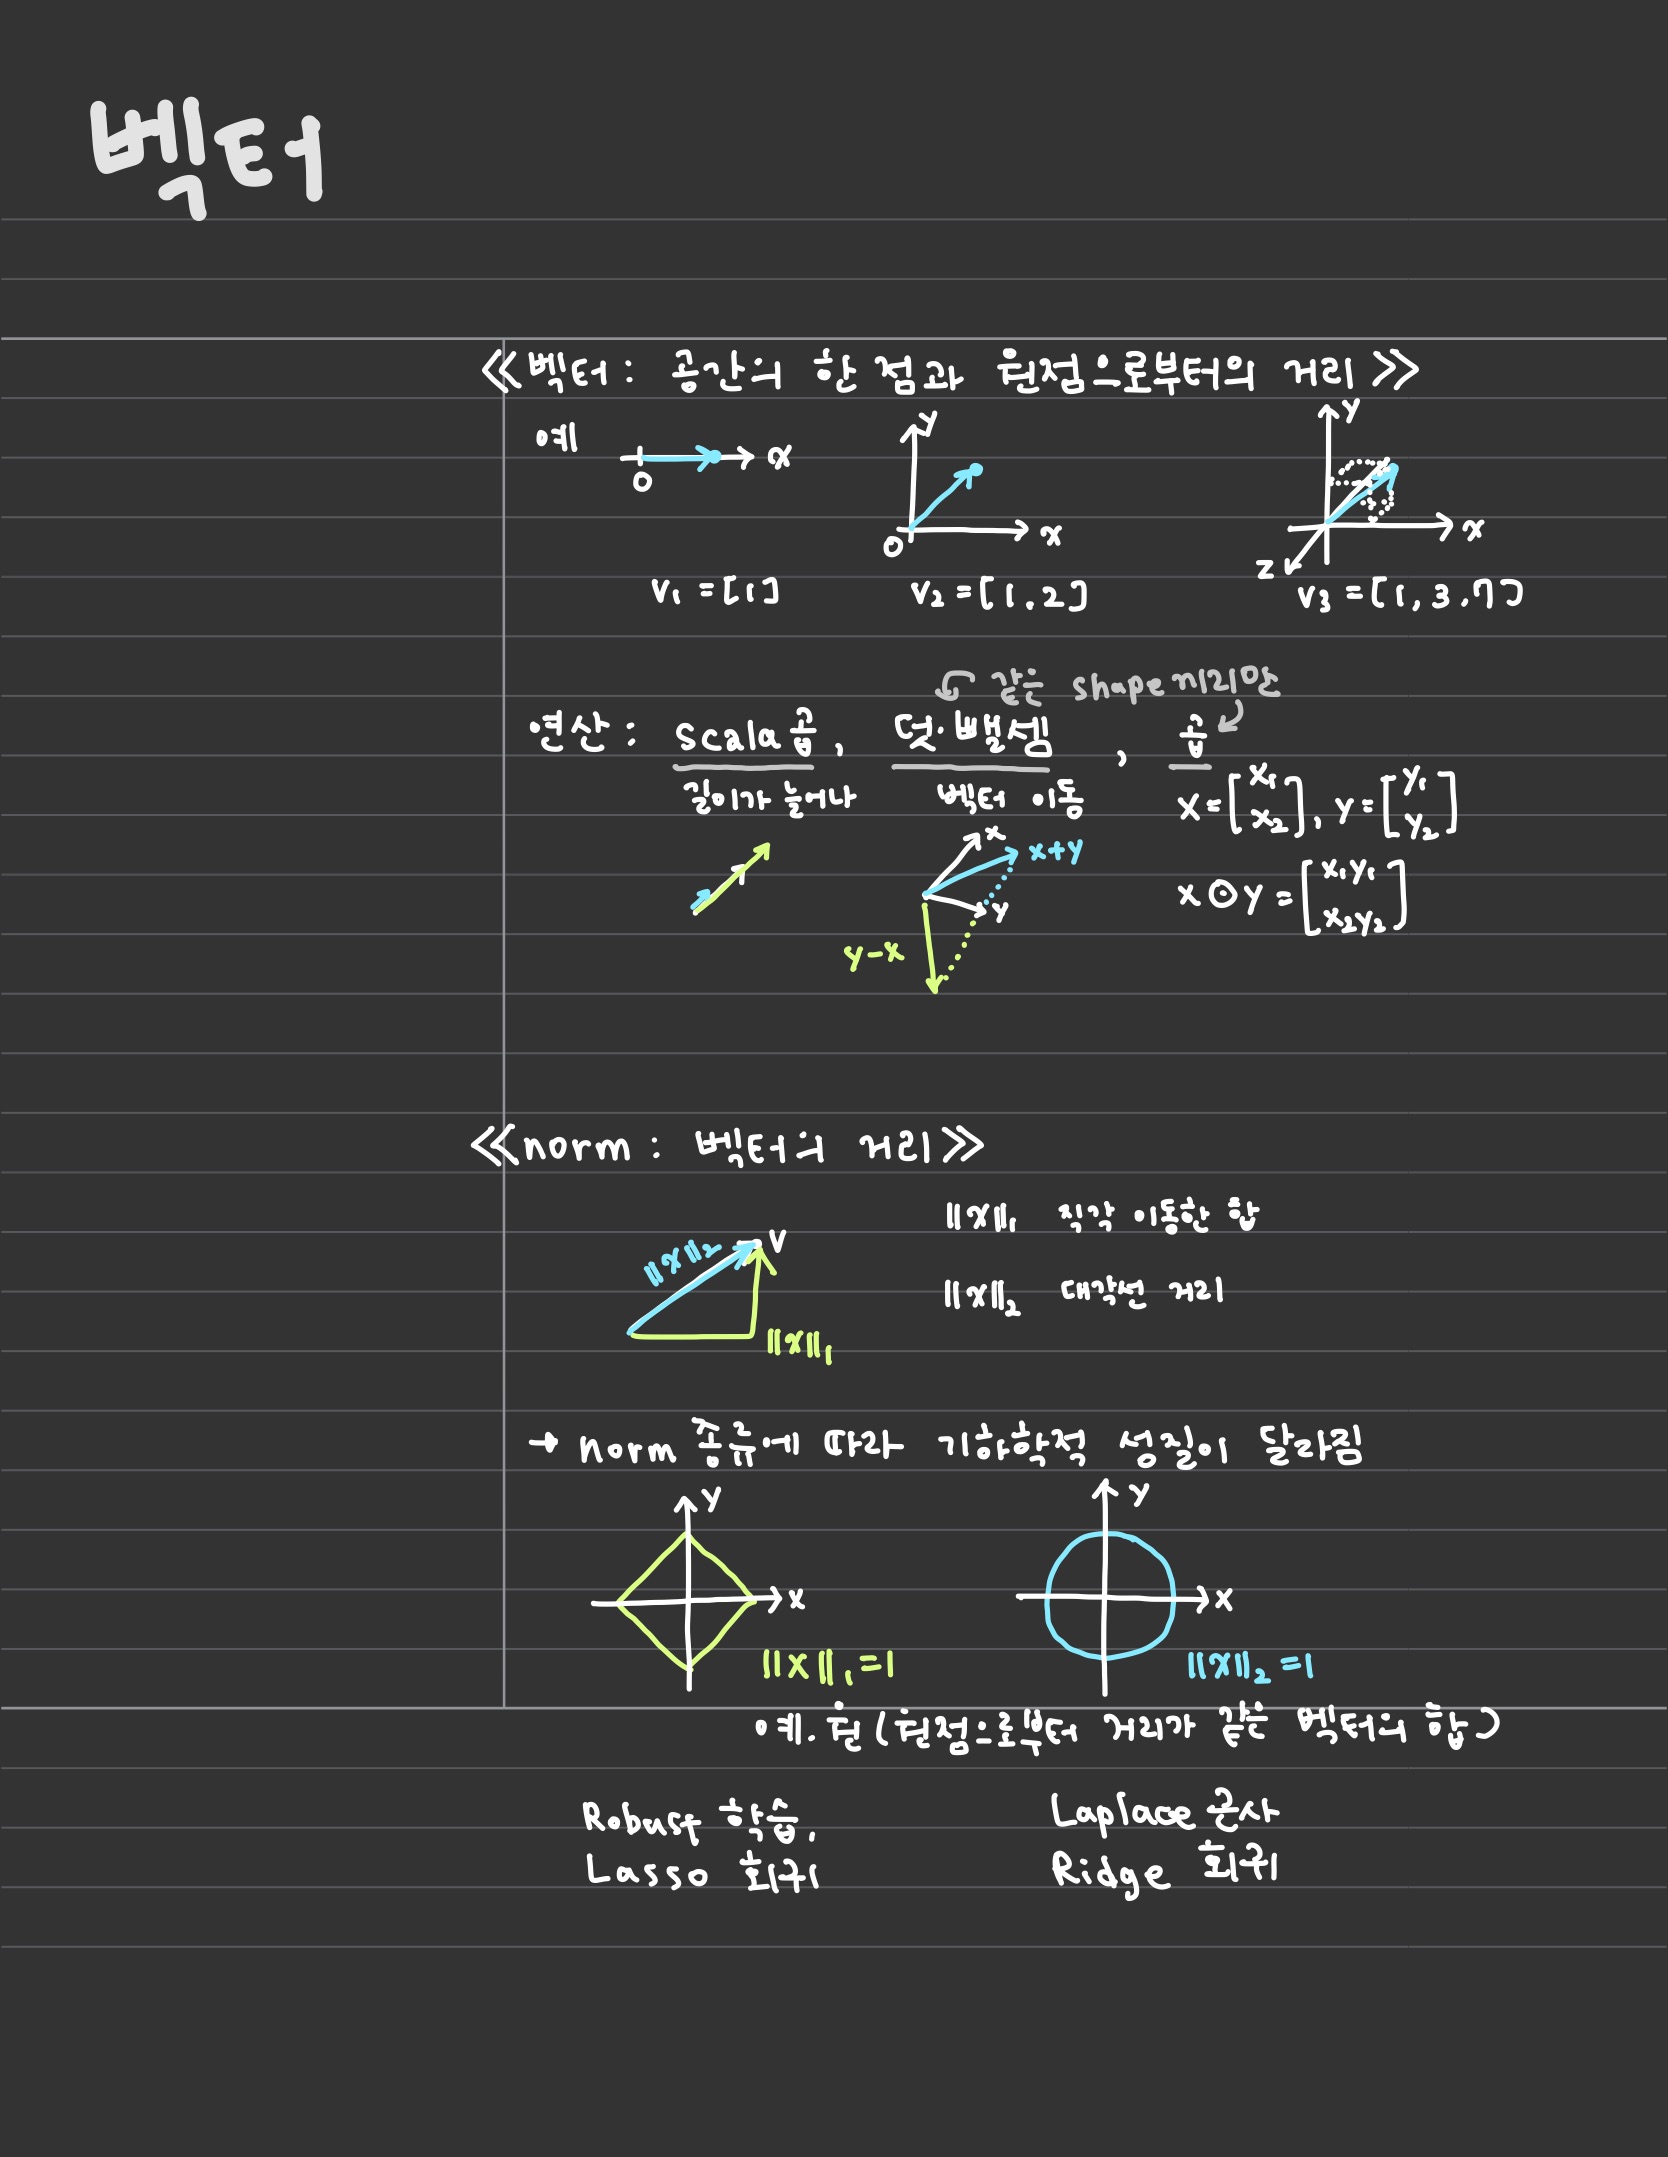 벡터
≪벡터: 공간의 한 점과 원점으로부터의 거리≫
예
0 x
y
0 x
y
x
z
v₁ = [1] v₂ = [1, 2] v₃ = [1, 3, 7]
같은 shape끼리만
연산: scala곱, 덧·뺄셈, 곱
길이가 늘어나 벡터 이동
x = [x₁ x₂], y = [y₁ y₂]
x x+y
y
y-x
x ⊙ y = [x₁y₁ x₂y₂]
≪norm: 벡터의 거리≫
||x||₂ v
||x||₁
||x||₁ 직각 이동한 합
||x||₂ 대각선 거리
→ norm 종류에 따라 기하학적 성질이 달라짐
y
x
||x||₁=1
y
x
||x||₂=1
예. 원(원점으로부터 거리가 같은 벡터의 합)
Robust 학습,
Lasso 회귀
Laplace 근사
Ridge 회귀